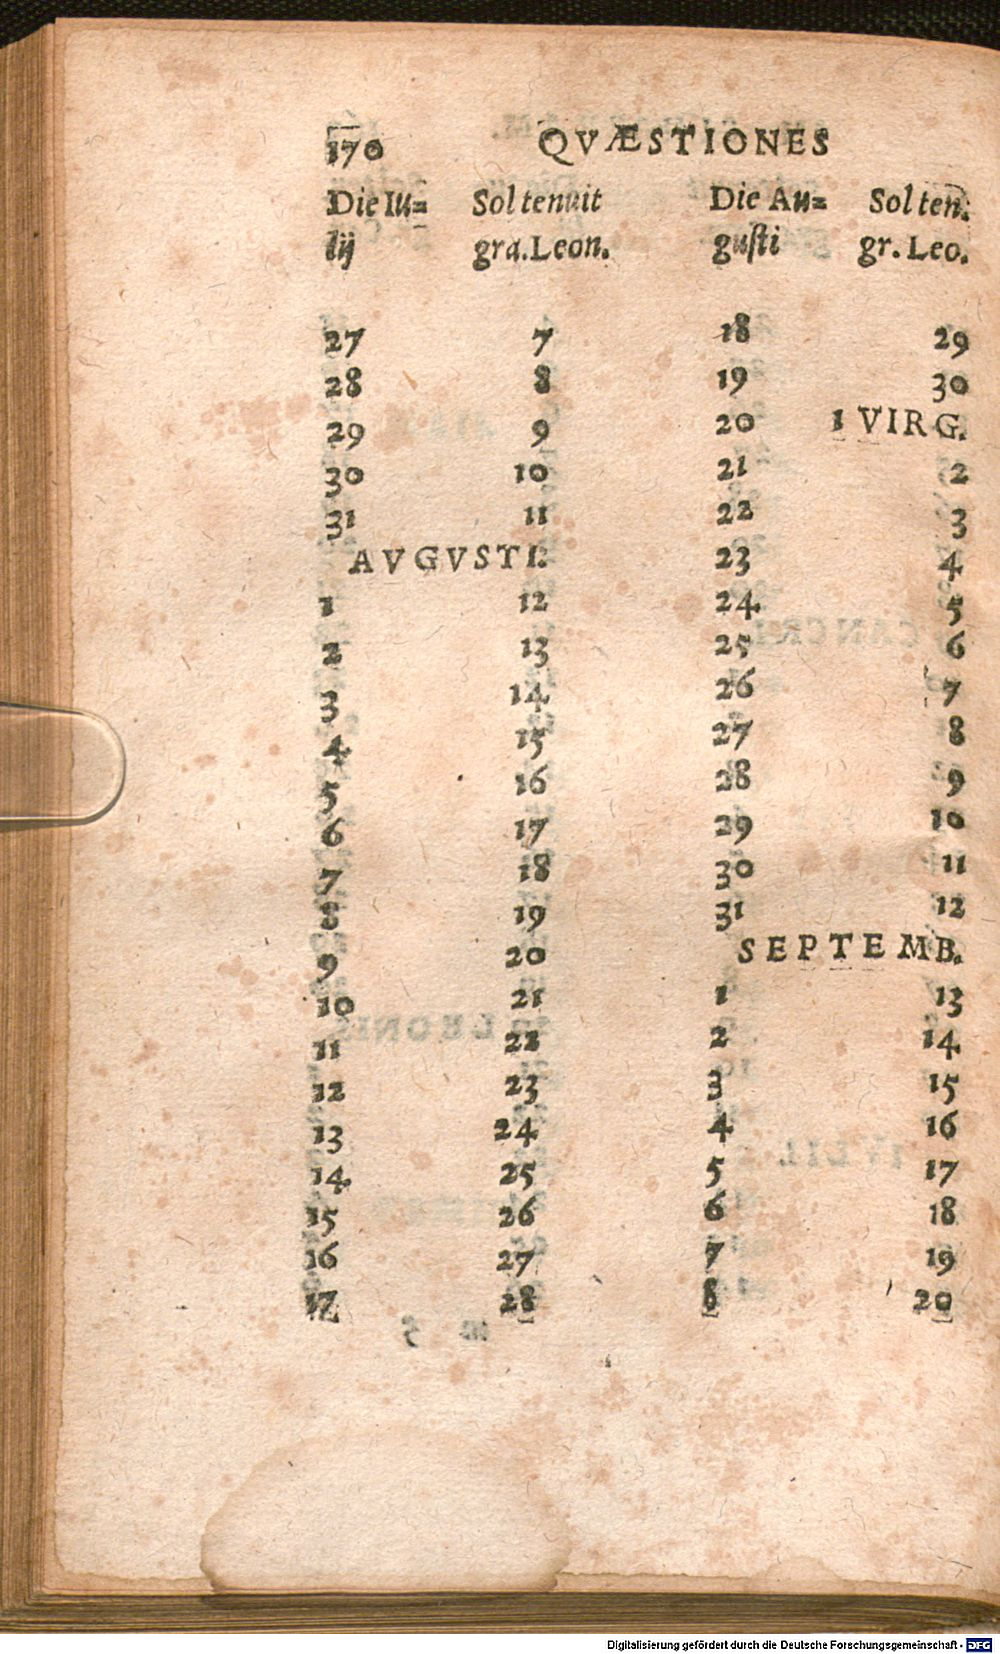 170 QVÆSTIONES
Die Iu= Sol tenuit Die Au= Sol ten.
lij gra. Leon. gusti gr. Leo.
27 7 18 29
28 8 19 30
29 9 20 1 VIRG.
30 10 21 2
31 11 22 3
AVGVSTI. 23 4
1 12 24 5
2 13 25 6
3 14 26 7
4 15 27 8
5 16 28 9
6 17 29 10
7 18 30 11
8 19 31 12
9 20 SEPTEMB.
10 21 1 13
11 22 2 14
12 23 3 15
13 24 4 16
14 25 5 17
15 26 6 18
16 27 7 19
17 28 8 20
Digitalisierung gefördert durch die Deutsche Forschungsgemeinschaft - DFG